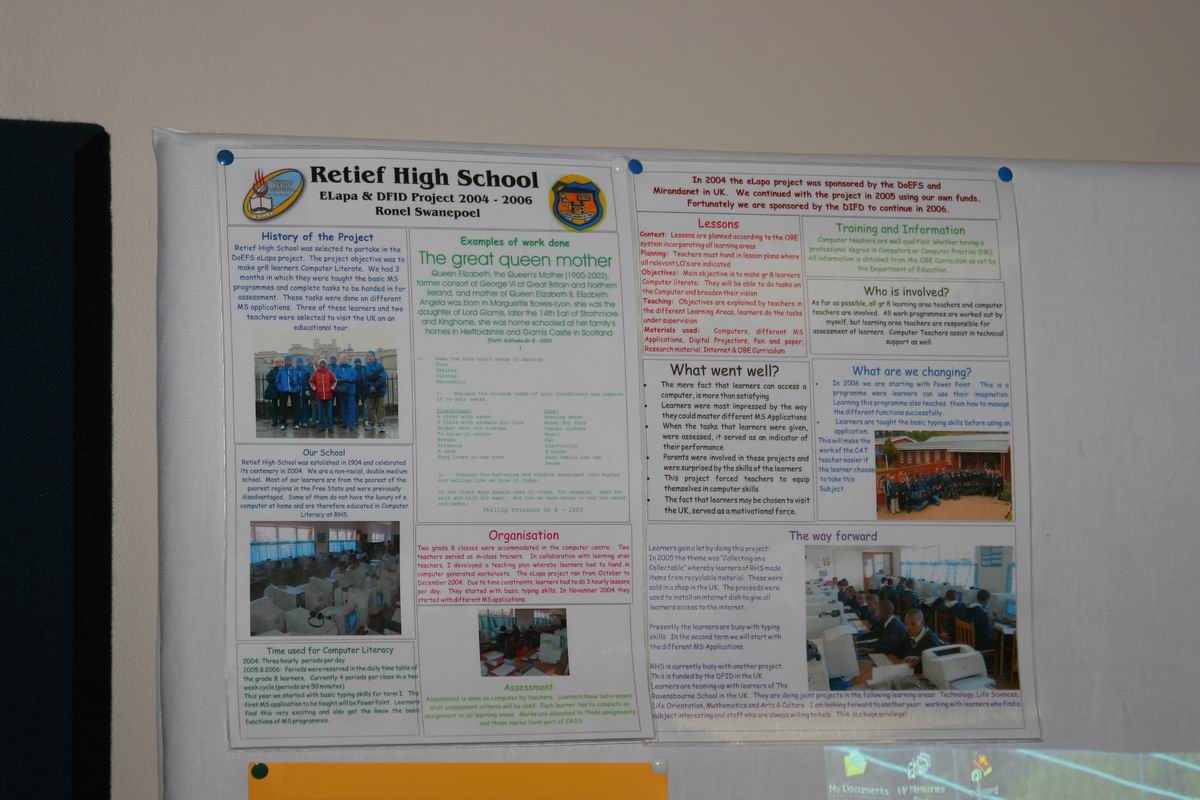 Retief High School
ELapa & DFID Project 2004 - 2006
Ronel Swanepoel
History of the Project
Retief High School was selected to partake in the
DoEFS eLapa project. The project objective was to
make gr8 learners Computer Literate. We had 3
months in which they were taught the basic MS
programmes and complete tasks to be handed in for
assessment. These tasks were done on different
MS applications. Three of these learners and two
teachers were selected to visit the UK on an
educational tour.
Our School
Retief High School was established in 1904 and celebrated
its centenary in 2004. We are a non-racial, double medium
school. Most of our learners are from the poorest of the
poorest regions in the Free State and were previously
disadvantaged. Some of them do not have the luxury of a
computer at home and are therefore educated in Computer
Literacy at RHS.
Time used for Computer Literacy
2004: Three hourly periods per day
2005 & 2006: Periods were reserved in the daily time table of
the grade 8 learners. Currently 4 periods per class in a two
week cycle (periods are 50 minutes)
This year we started with basic typing skills for term 1. The
first MS application to be taught will be Power Point. Learners
find this very exciting and also get the know the basic
functions of MS programmes.
Examples of work done
The great queen mother
Queen Elizabeth, the Queen's Mother (1900-2002),
former consort of George VI of Great Britain and Northern
Ireland, and mother of Queen Elizabeth II. Elizabeth
Angela was born in Marguerite Bowes-Lyon, she was the
daughter of Lord Glamis, later the 14th Earl of Strathmore
and Kinghorne, she was home schooled at her family's
homes in Hertfordshire and Glamis Castle in Scotland
Name the four basic needs of mankind
Food
Shelter
Clothes
Recreation
Explain the minimum needs of your forefathers and compare
it to your needs.
Forefathers:
A river with water
A field with animals for food
Animal skin for clothes
To relax in nature
Horses
Firewood
A cave
They lived in one room
Ours:
Running water
Money for food
Casual clothes
Music
Car
Electricity
A house
Each family has own
house
Explain how bartering and trading developed into buying
and selling like we know it today.
In the older days people used to trade, for example, eggs for
milk and milk for meat. But now we have money to buy our needs
and wants.
Phillip Prinsloo Gr 8 - 2003
Organisation
Two grade 8 classes were accommodated in the computer centre. Two
teachers served as in-class trainers. In collaboration with learning area
teachers, I developed a teaching plan whereby learners had to hand in
computer generated worksheets. The eLapa project ran from October to
December 2004. Due to time constraints, learners had to do 3 hourly lessons
per day. They started with basic typing skills. In November 2004 they
started with different MS applications.
Assessment
Assessment is done on computer by teachers. Learners know beforehand
what assessment criteria will be used. Each learner has to complete an
assignment on all learning areas. Marks are allocated to these assignments
and these marks form part of CASS.
In 2004 the eLapa project was sponsored by the DoEFS and
Mirandanet in UK. We continued with the project in 2005 using our own funds.
Fortunately we are sponsored by the DIFD to continue in 2006.
Lessons
Context: Lessons are planned according to the OBE
system incorporating all learning areas
Planning: Teachers must hand in lesson plans where
all relevant LO's are indicated
Objectives: Main objective is to make gr 8 learners
Computer literate: They will be able to do tasks on
the Computer and broaden their vision
Teaching: Objectives are explained by teachers in
the different Learning Areas, learners do the tasks
under supervision
Materials used: Computers, different MS
Applications, Digital Projectors, Pen and paper,
Research material, Internet & OBE Curriculum
Training and Information
Computer teachers are well qualified, whether having a
professional degree in Computers or Computer Practise (N6).
All information is obtained from the OBE Curriculum as set by
the Department of Education.
Who is involved?
As far as possible, all gr 8 learning area teachers and computer
teachers are involved. All work programmes are worked out by
myself, but learning area teachers are responsible for
assessment of learners. Computer Teachers assist in technical
support as well.
What went well?
• The mere fact that learners can access a
computer, is more than satisfying
• Learners were most impressed by the way
they could master different MS Applications
• When the tasks that learners were given,
were assessed, it served as an indicator of
their performance
• Parents were involved in these projects and
were surprised by the skills of the learners
• This project forced teachers to equip
themselves in computer skills
• The fact that learners may be chosen to visit
the UK, served as a motivational force.
What are we changing?
• In 2006 we are starting with Power Point. This is a
programme were learners can use their imagination.
Learning this programme also teaches them how to manage
the different functions successfully.
• Learners are taught the basic typing skills before using an
application.
This will make the
work of the CAT
teacher easier if
the learner choose
to take this
Subject.
The way forward
Learners gain a lot by doing this project:
In 2005 the theme was "Collecting on a
Collectable" whereby learners of RHS made
items from recyclable material. These were
sold in a shop in the UK. The proceeds were
used to install an internet dish to give all
learners access to the internet.
Presently the learners are busy with typing
skills. In the second term we will start with
the different MS Applications.
RHS is currently busy with another project.
This is funded by the DFID in the UK.
Learners are teaming up with learners of The
Ravensbourne School in the UK. They are doing joint projects in the following learning areas: Technology, Life Sciences,
Life Orientation, Mathematics and Arts & Culture. I am looking forward to another year: working with learners who find a
subject interesting and staff who are always willing to help. This is a huge privilege!
My Documents
HP Memories